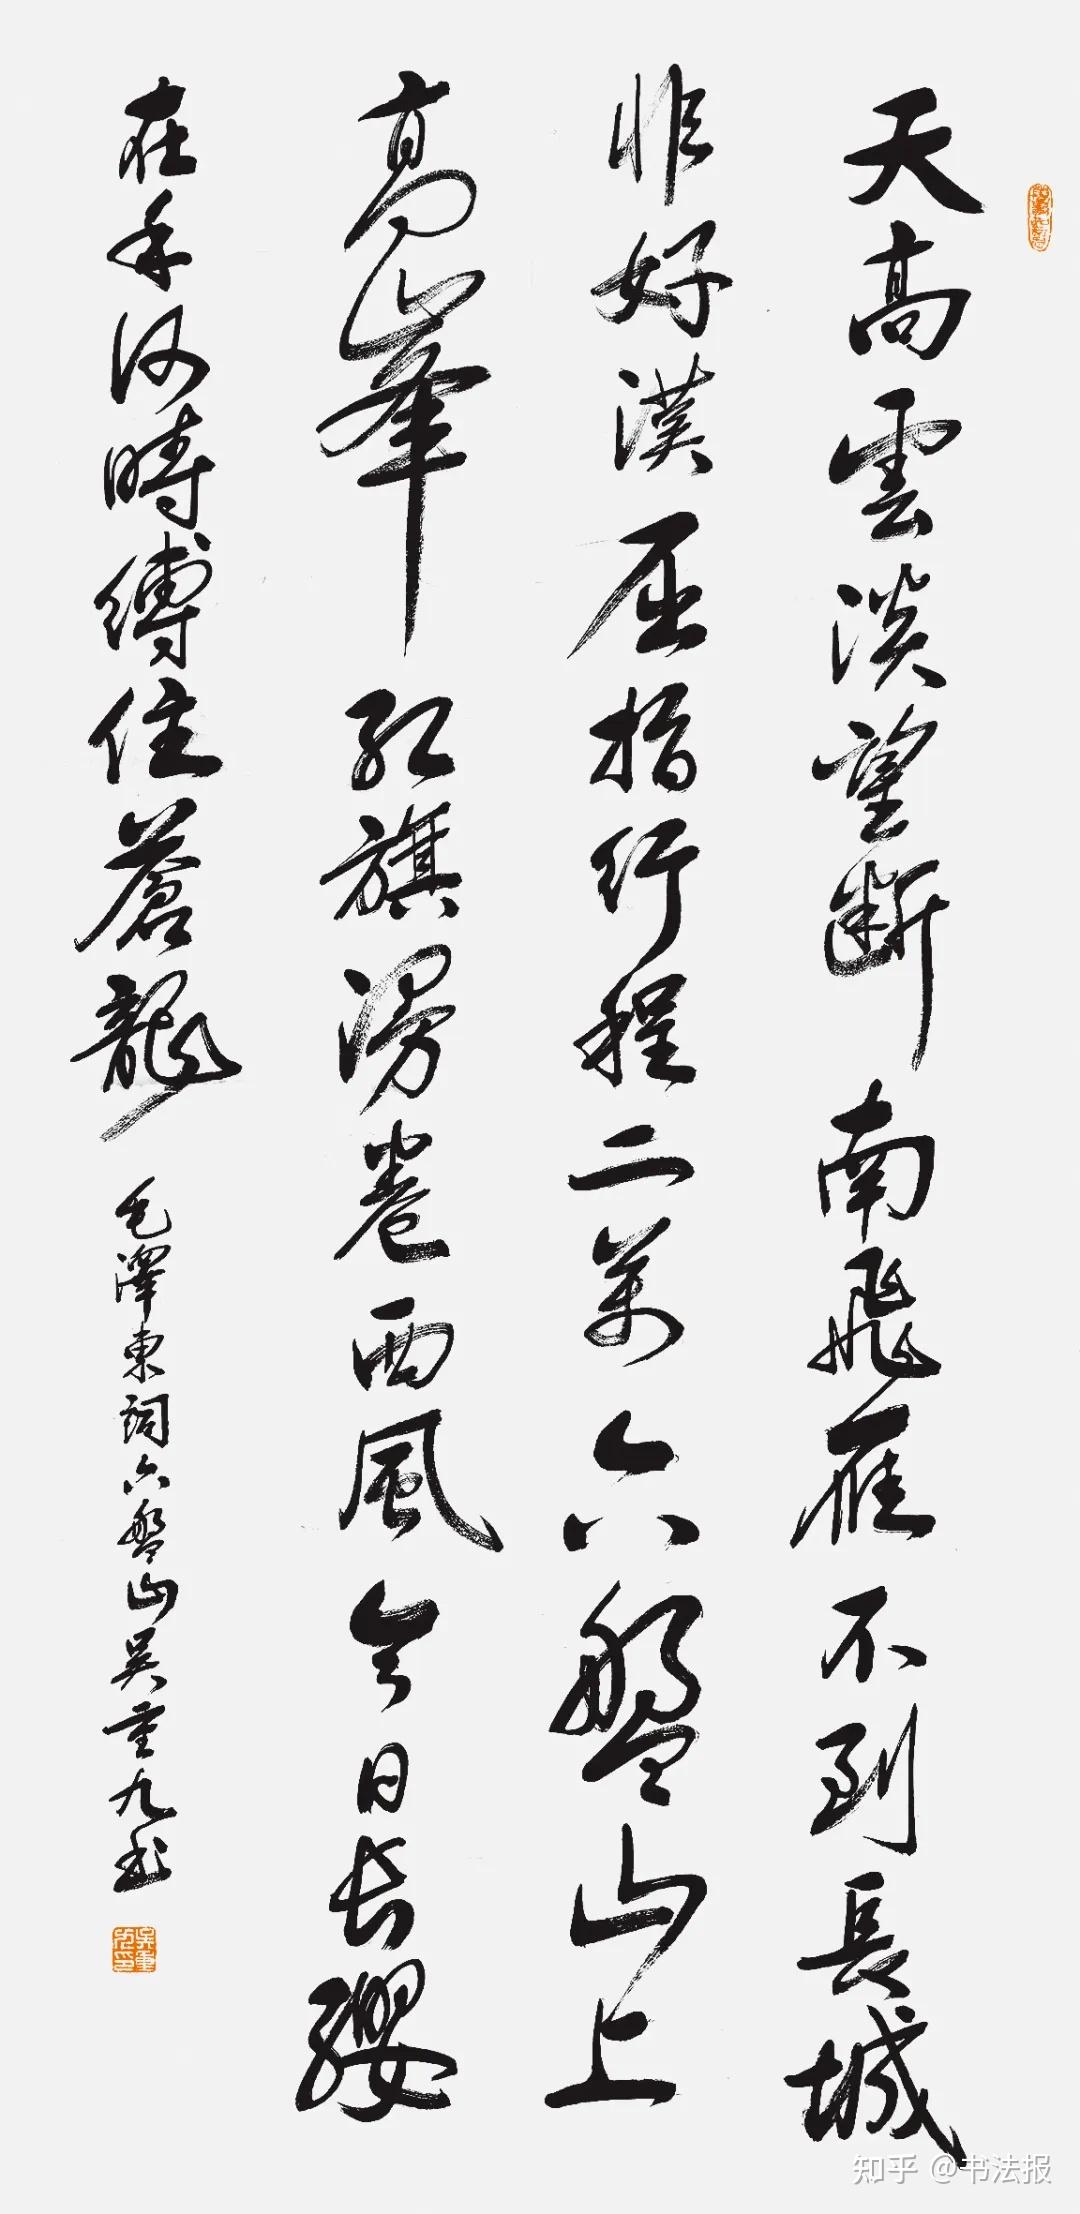 天高雲淡望断南飛雁不到長城
非好漢屈指行程二萬六盤山上
高峯红旗漫卷西風今日长纓
在手何時縛住蒼龍
毛澤東詞六盤山吴重九书
知乎 @书法报